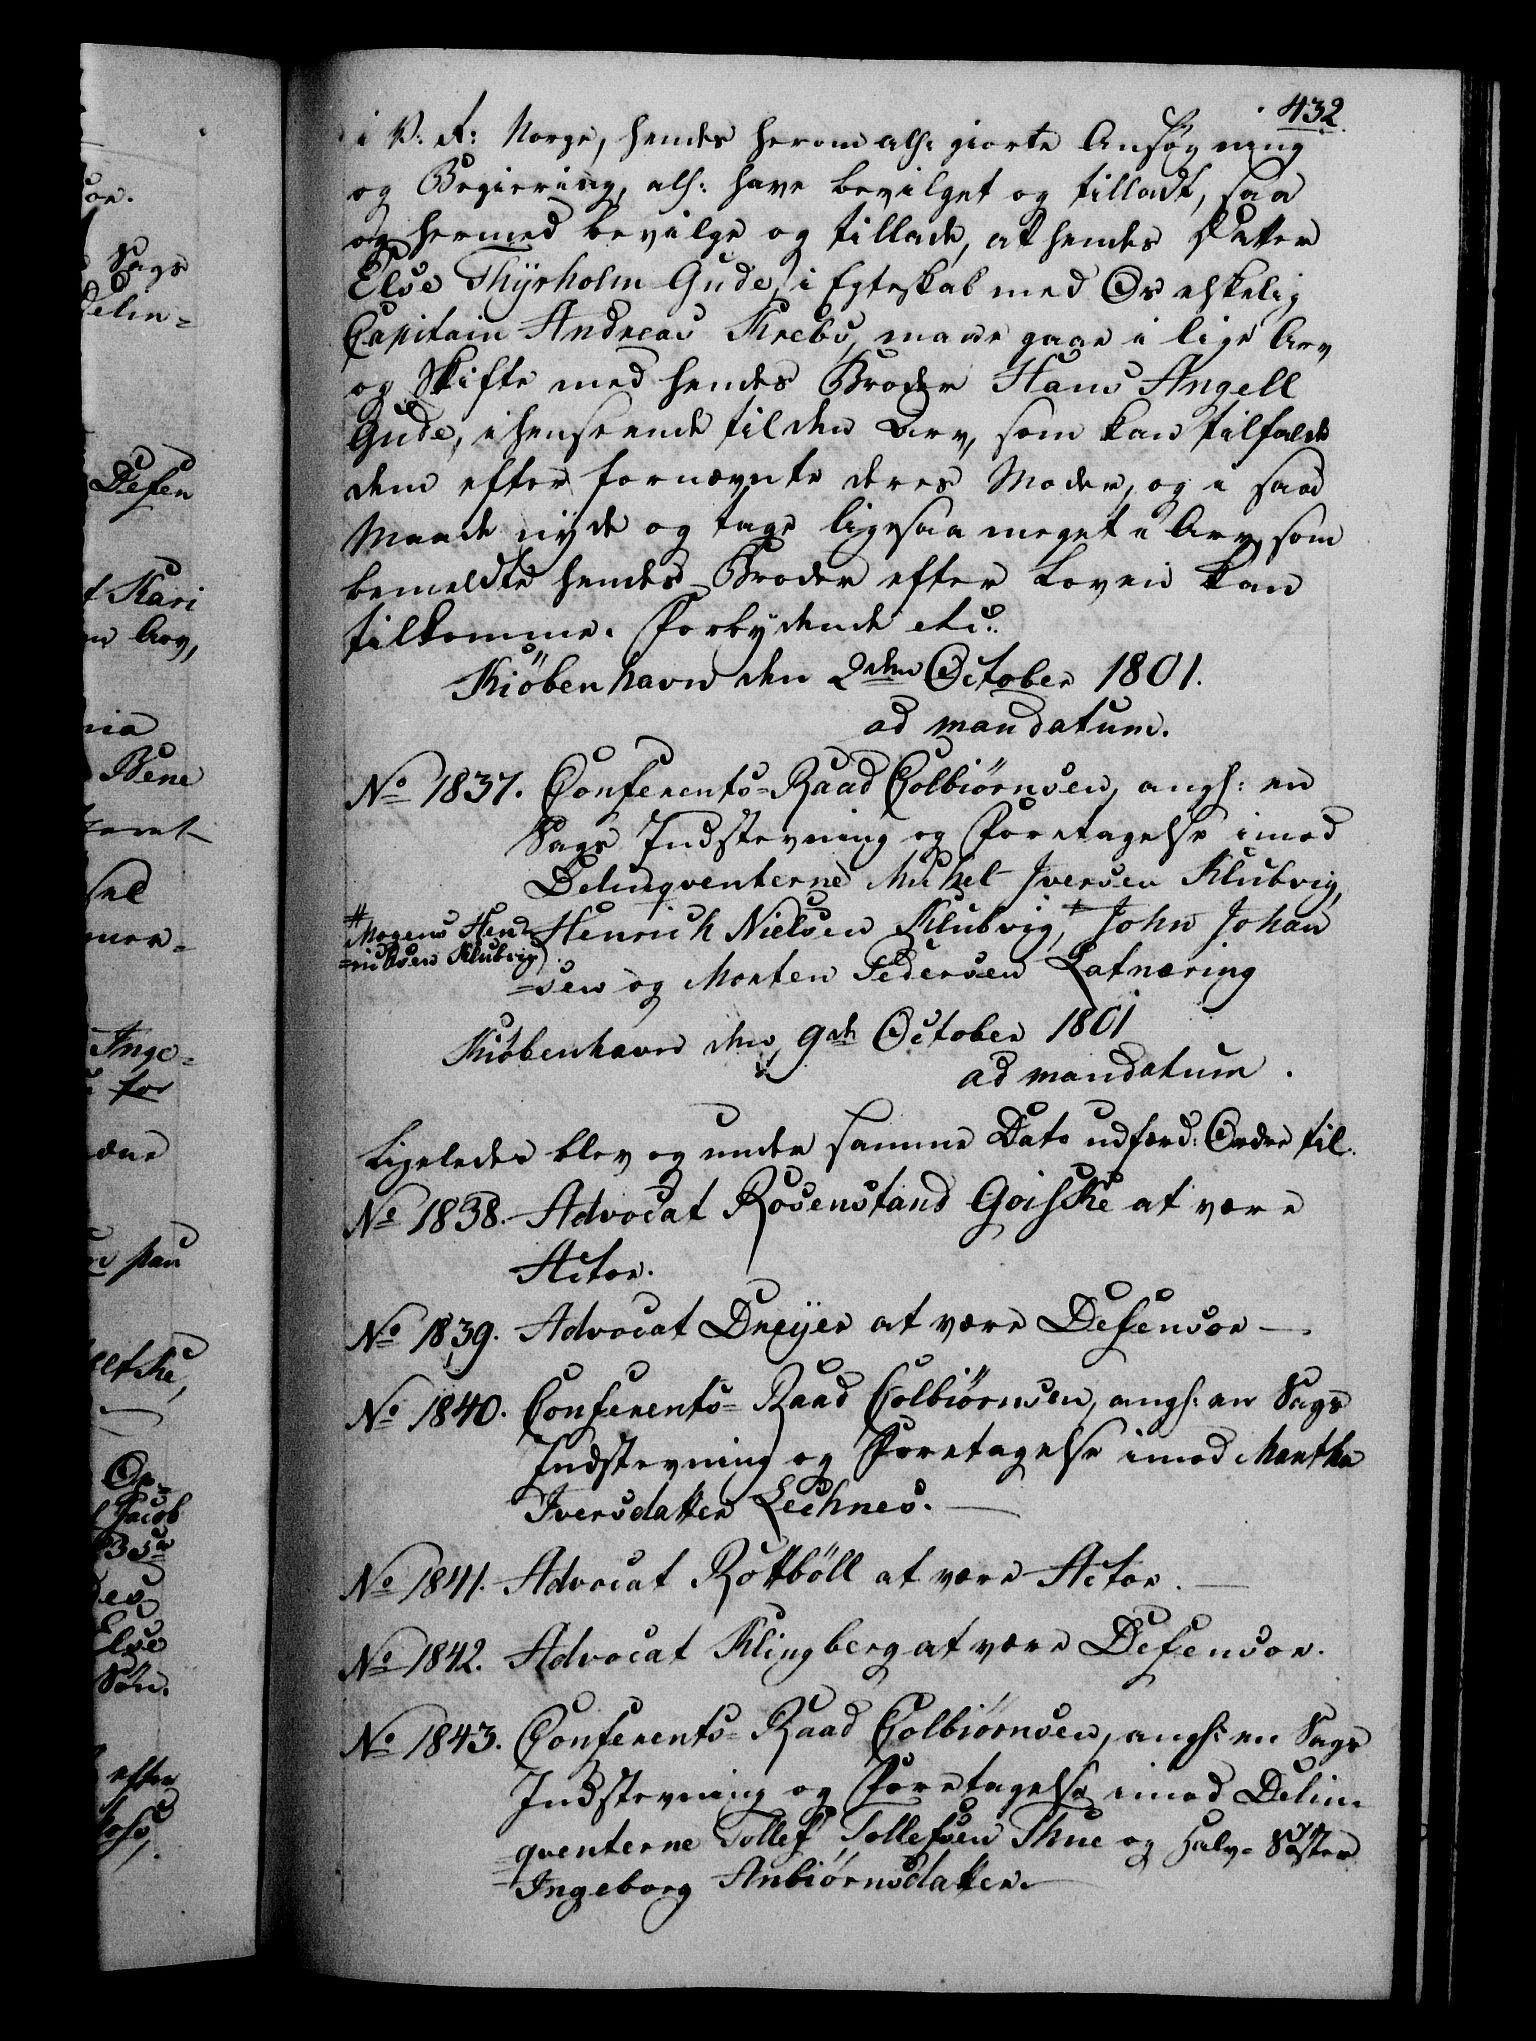 432.
i V. A: Norge, hendes herom allr: giorte Ansøgning
og Begiering, allr: have bevilget og tilladt, saa
og hermed bevilge og tillade, at hendes Datter
Else Thyrholm Gude, i Egteskab med Os elskelig
Capitain Andreas Krebs, maae gaae i lige Arv
og Skifte med hendes Broder Hans Angell
Gude, i henseende til den Arv, som kan tilfalde
dem efter fornævnte deres Moder, og i saa
Maade nyde og tage ligesaa meget i Arv, som
bemeldte hendes Broder efter Loven kan
tilkomme. Forbydende etc:
Kiöbenhavn den 2den October 1801.
ad mandatum.
No 1837. Conferents-Raad Colbiörnsen, angl: en
Sags Indstevning og Foretagelse imod
Delinqventerne Mikel Iversen Klubvig,
Henrich Nielsen Klubvig, # John Johan
# Mogens Hen=
=richsen Klubvig
=sen og Morten Pedersen Latnæring
Kiøbenhavn den 9de October 1801
ad mandatum.
Ligeledes blev og under samme Dato udfærd: Ordre til.
No 1838. Advocat Rosenstand Goiske at være
Actor.
No 1839. Advocat Dreyer at være Defensor —
No 1840. Conferents-Raad Colbiörnsen, angl: en Sags
Indstevning og Foretagelse imod Martha
Iversdatter Lechnes. —
No 1841. Advocat Rottböll at være Actor. —
No 1842. Advocat Klingberg at være Defensor.
No 1843. Conferents-Raad Colbiørnsen, angl: en Sags
Indstevning og Foretagelse imod Delin=
=qventerne Tollef Tollefsen Thue og Halv-Søster
Ingeborg Anbiørnsdatter. —